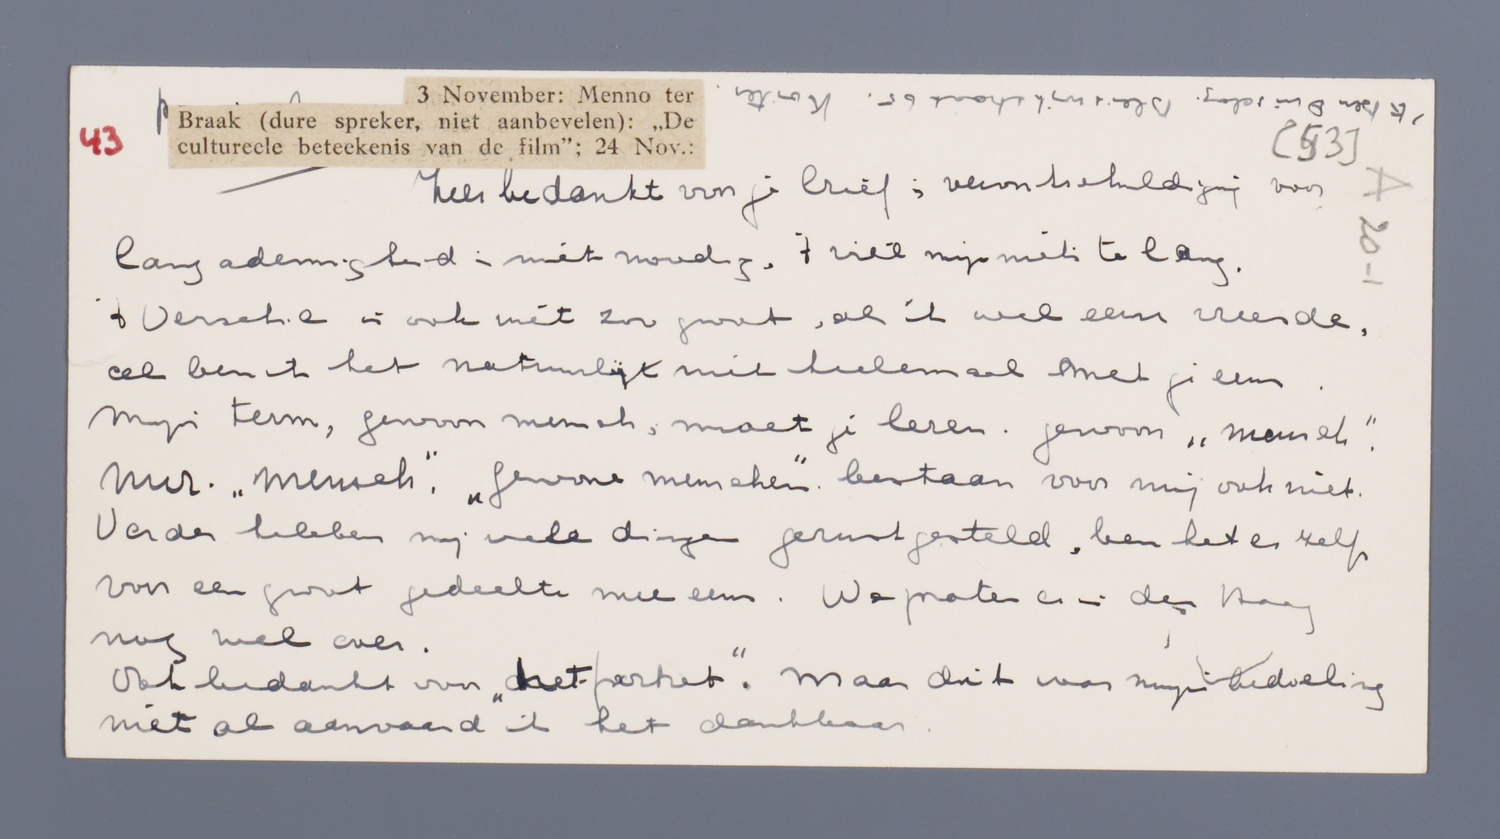 3 November: Menno ter
Braak (dure spreker, niet aanbevelen): „De
cultureele beteekenis van de film”; 24 Nov.:
43
[53]
A 20-1
'k ben Dinsdag. straat 65.
Zeer bedankt voor je brief; verontschuldiging voor
langademigheid is niet noodig, 't viel mij niets te lang.
't Verschil is ook niet zoo groot, als ik wel eens vreesde,
al ben ik het natuurlijk niet heelemaal met je eens.
Mijn term, gewoon mensch, moet je lezen. gewoon „mensch”.
„mensch”. „gewone menschen” bestaan voor mij ook niet.
Verder hebben mij vele dingen gerustgesteld, ben het er zelf
voor een groot gedeelte mee eens. We praten er in den Haag
nog wel over.
Ook bedankt voor „het parket”. Maar dit was mijn bedoeling
niet al aanvaard ik het dankbaar.